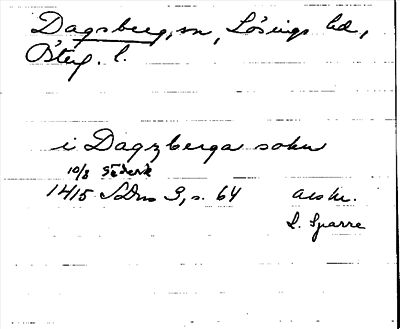 Dagsberg, sn, Lösings hd,
Österg. l.
i Dagzberga sokn
10/8 Söderk
1415 SDns 3, s. 64 avskr.
S. Sparre